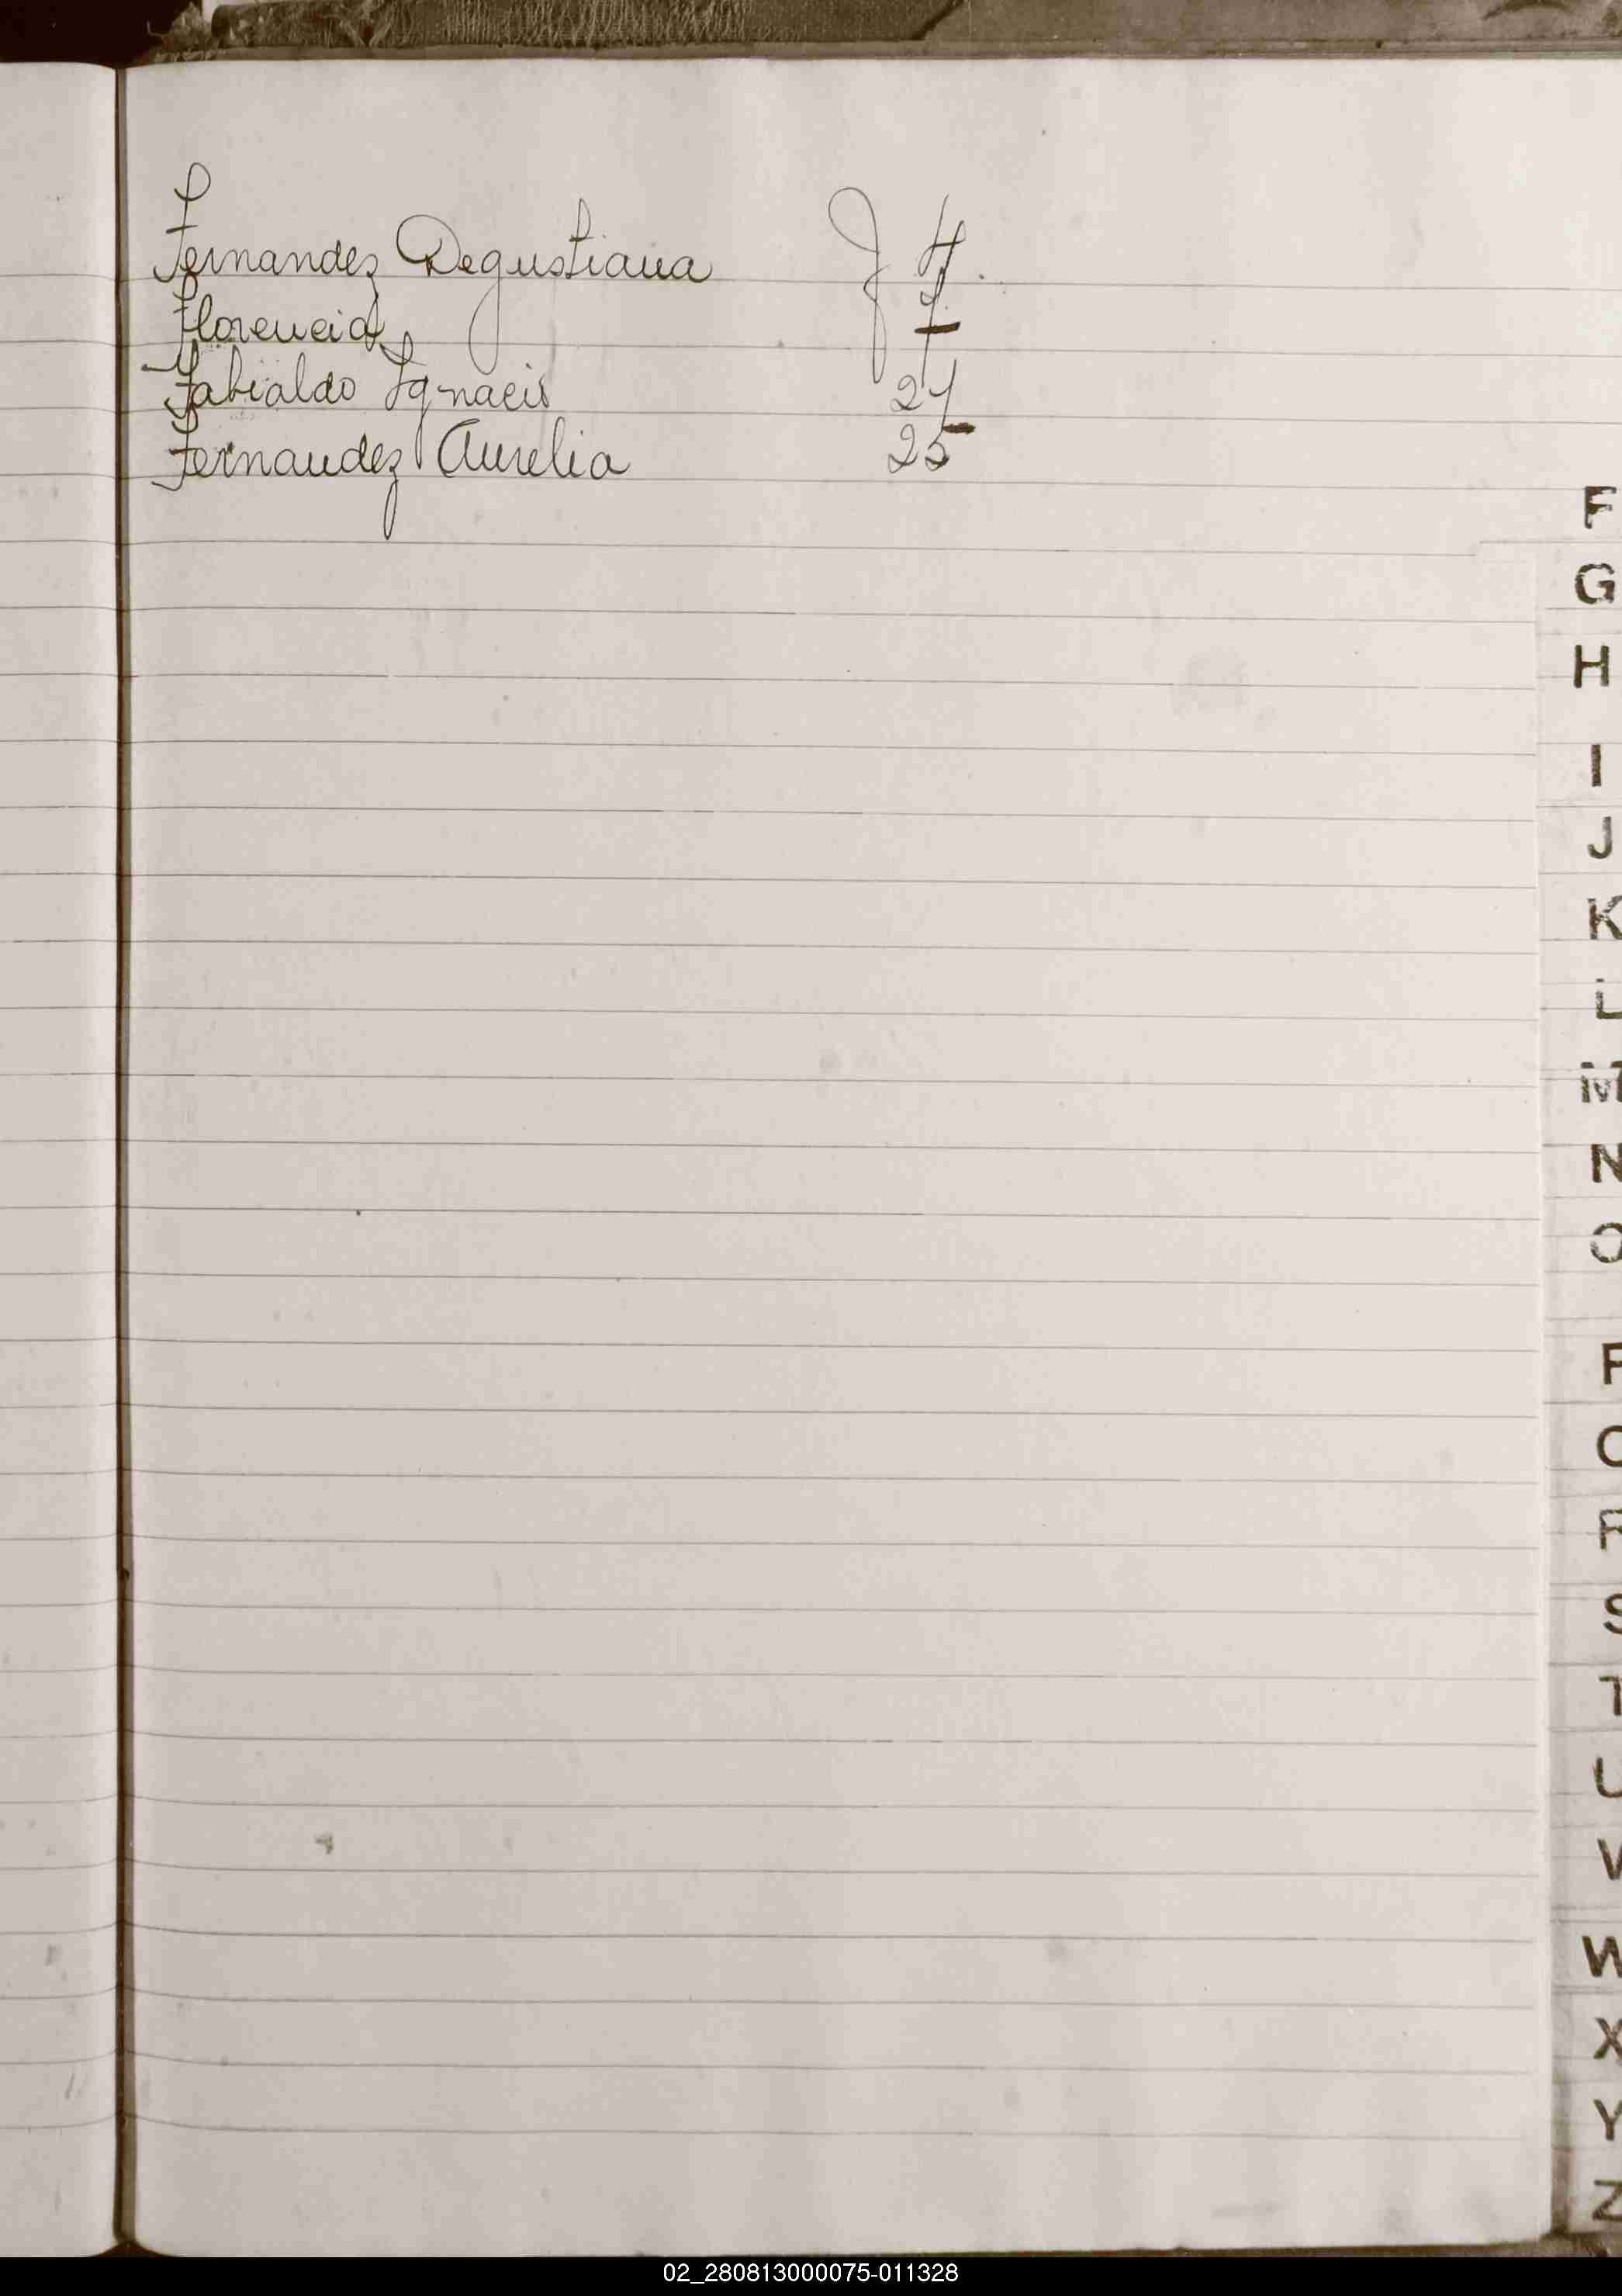 Fernandez Degustiana f 4.
Florencia 7
Fabialdo Ygnacio 24
Fernandez Aurelia 25
F
G
H
I
J
K
L
M
N
O
P
Q
R
S
T
U
V
W
X
Y
Z
02_280813000075-011328